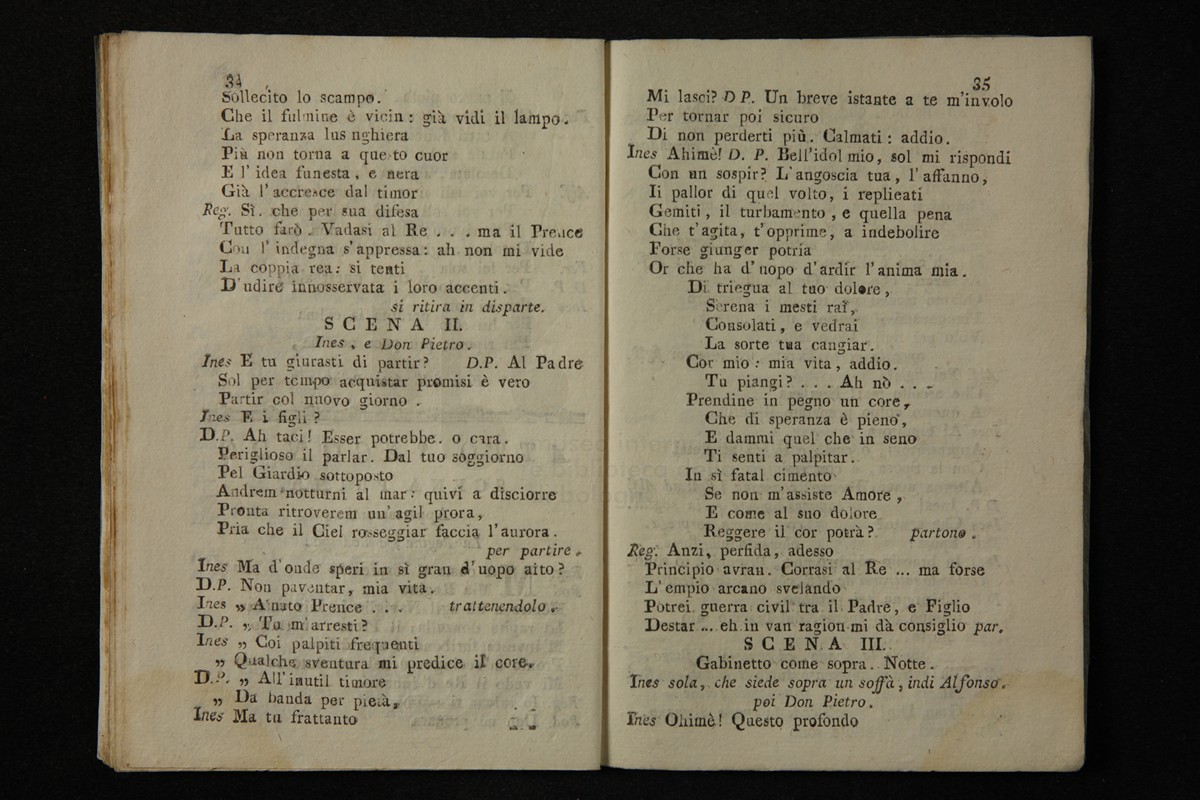 34
Sollecito lo scampo.
Che il fulmine è vicin: già vidi il lampo.
La speranza lus nghiera
Più non torna a questo cuor
E l'idea funesta, e nera
Già l'accresce dal timor
Reg. Sì. che per sua difesa
Tutto farò. Vadasi al Re . . . ma il Prence
Con l'indegna s'appressa: ah non mi vide
La coppia rea: si tenti
D'udire innosservata i loro accenti.
si ritira in disparte.
SCENA II.
Ines, e Don Pietro.
Ines E tu giurasti di partir? D.P. Al Padre
Sol per tempo acquistar promisi è vero
Partir col nuovo giorno.
Ines E i figli?
D.P. Ah taci! Esser potrebbe. o cara.
Periglioso il parlar. Dal tuo soggiorno
Pel Giardio sottoposto
Andrem notturni al mar: quivi a disciorre
Pronta ritroverem un'agil prora,
Pria che il Ciel rosseggiar faccia l'aurora.
per partire.
Ines Ma d'onde speri in sì gran d'uopo aito?
D.P. Non paventar, mia vita.
Ines „ Amato Prence . . . trattenendolo.
D.P. „ Tu m'arresti?
Ines „ Coi palpiti frequenti
„ Qualche sventura mi predice il core.
D.P. „ All'inutil timore
„ Da banda per pietà,
Ines Ma tu frattanto
35
Mi lasci? D P. Un breve istante a te m'involo
Per tornar poi sicuro
Di non perderti più. Calmati: addio.
Ines Ahimè! D. P. Bell'idol mio, sol mi rispondi
Con un sospir? L'angoscia tua, l'affanno,
Il pallor di quel volto, i replicati
Gemiti, il turbamento, e quella pena
Che t'agita, t'opprime, a indebolire
Forse giunger potria
Or che ha d'uopo d'ardir l'anima mia.
Di triegua al tuo dolore,
Serena i mesti rai,
Consolati, e vedrai
La sorte tua cangiar.
Cor mio: mia vita, addio.
Tu piangi? . . . Ah nò . . .
Prendine in pegno un core,
Che di speranza è pieno,
E dammi quel che in seno
Ti senti a palpitar.
In sì fatal cimento
Se non m'assiste Amore,
E come al suo dolore
Reggere il cor potrà? partono.
Reg. Anzi, perfida, adesso
Principio avran. Corrasi al Re ... ma forse
L'empio arcano svelando
Potrei guerra civil tra il Padre, e Figlio
Destar ... eh in van ragion mi dà consiglio par.
SCENA III.
Gabinetto come sopra. Notte.
Ines sola, che siede sopra un soffà, indi Alfonso.
poi Don Pietro.
Ines Ohimè! Questo profondo